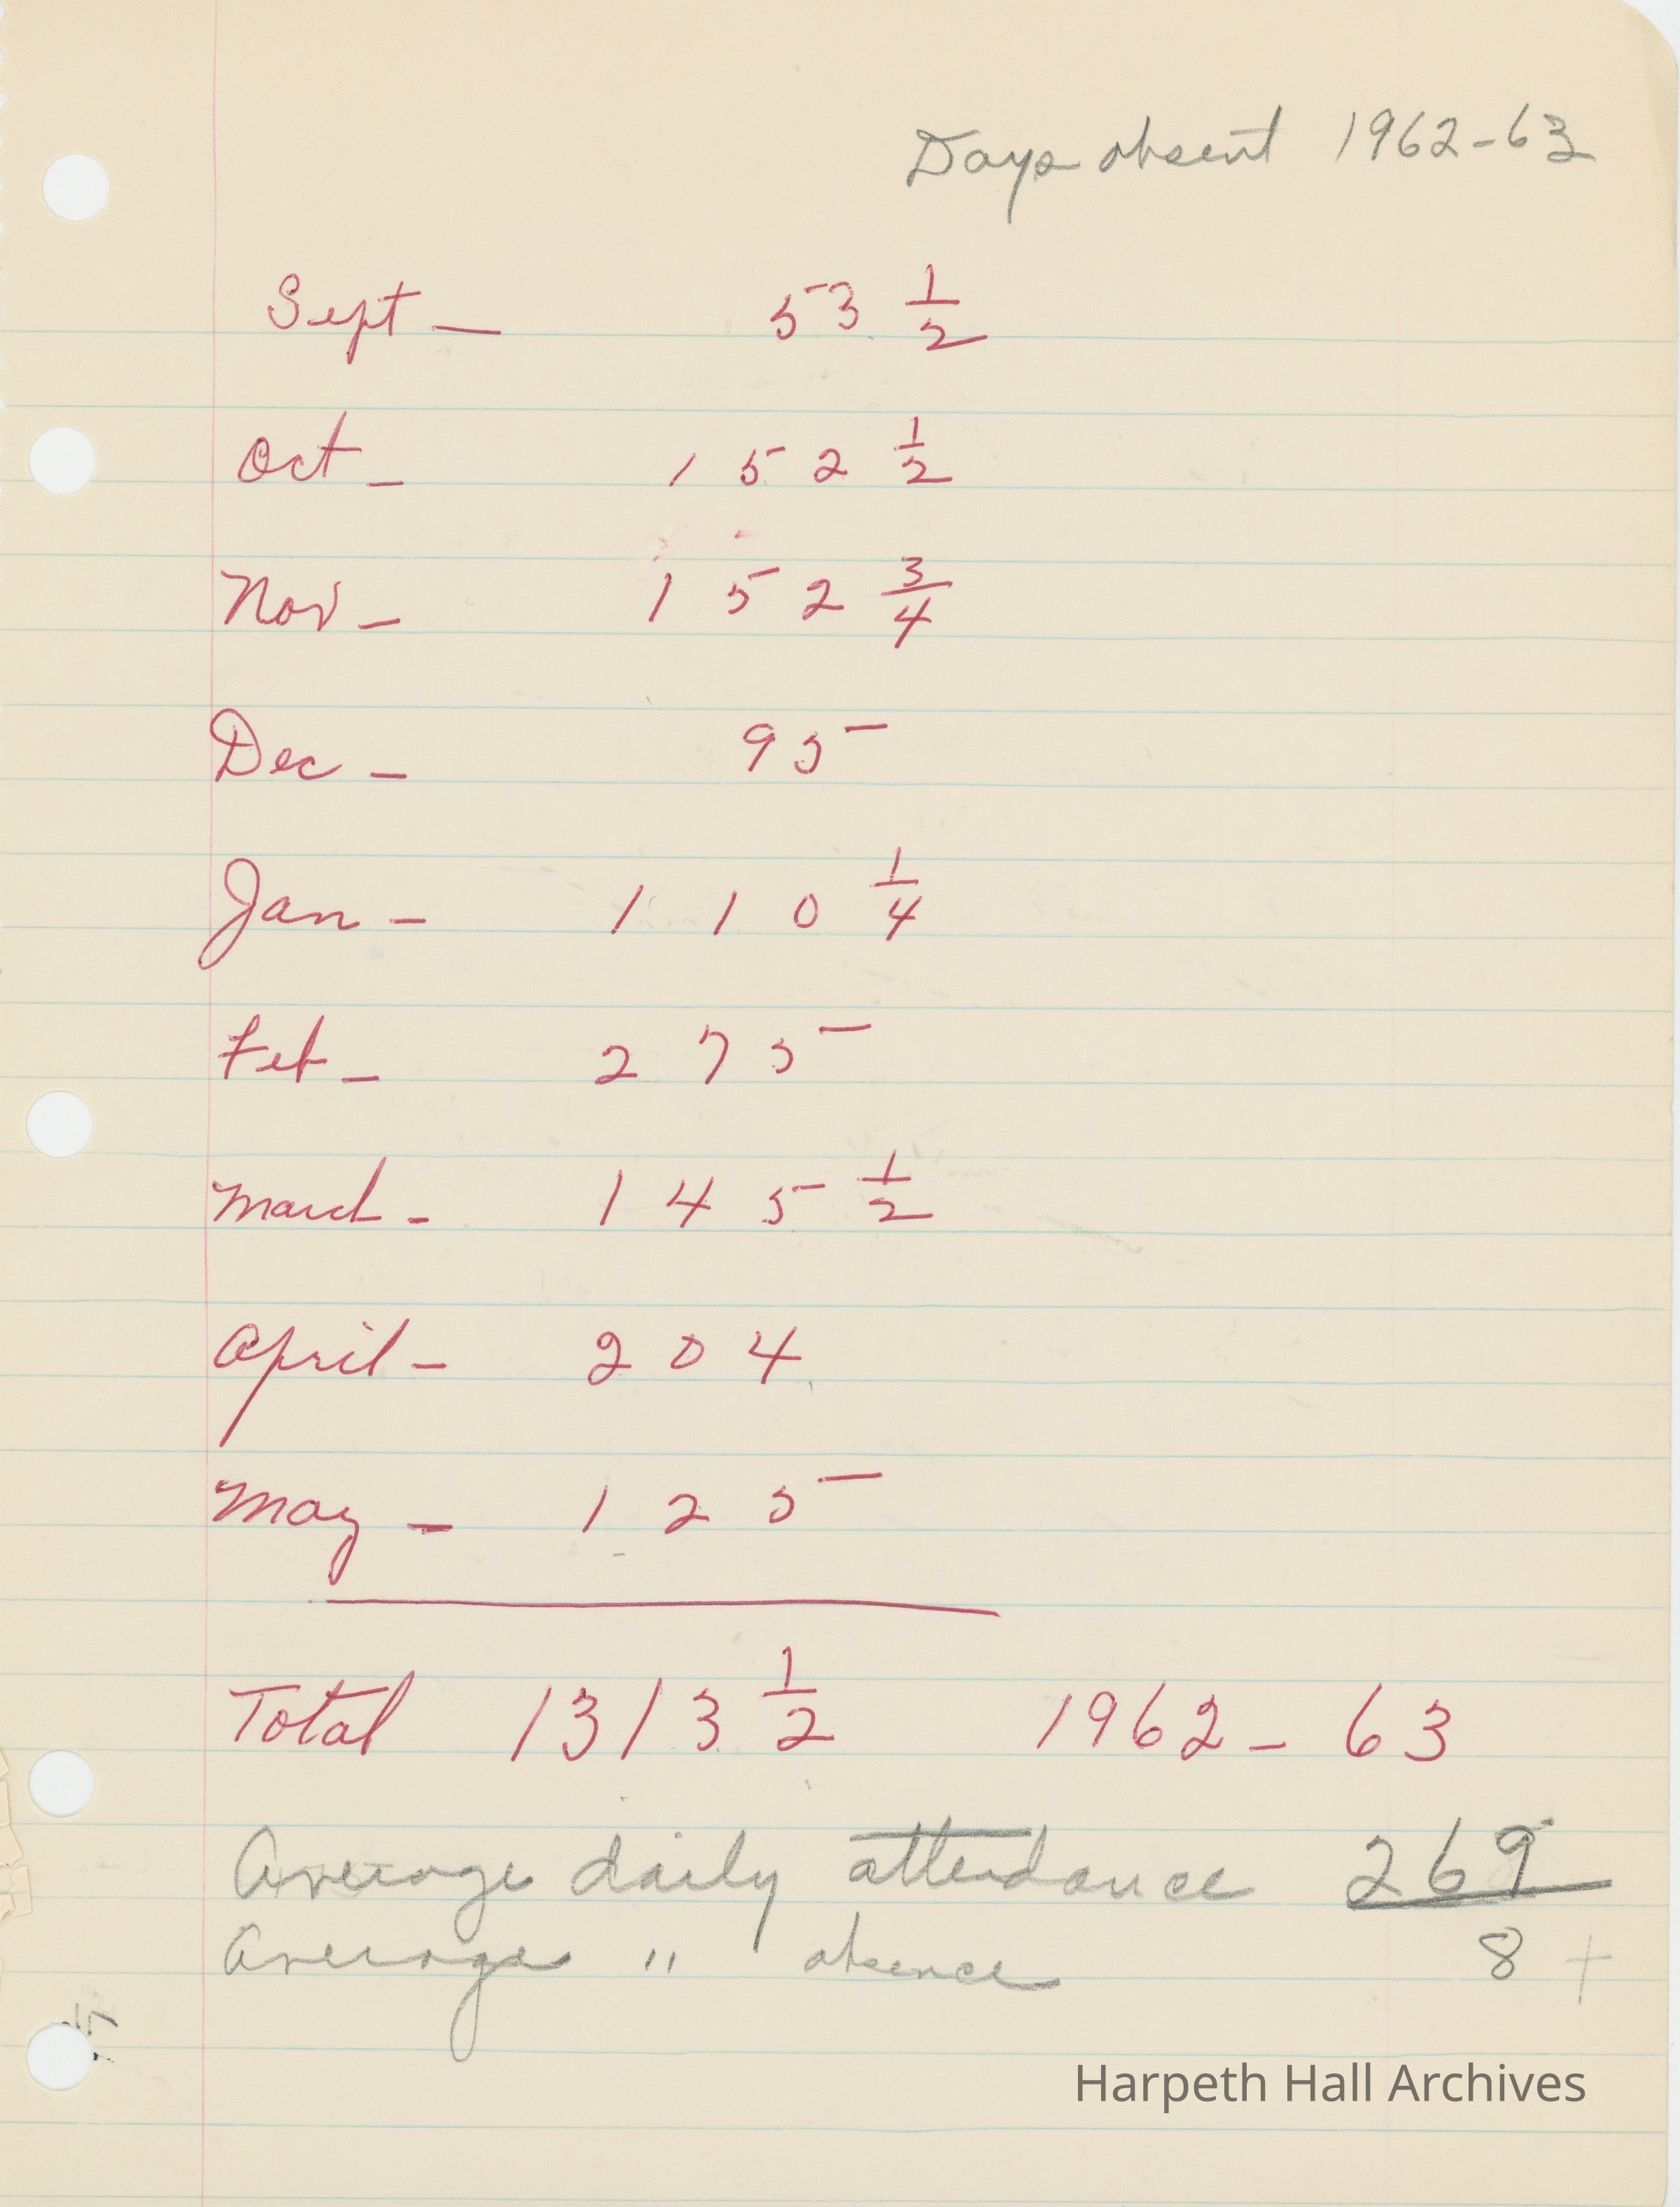 Days absent 1962-63
Sept - 53 1/2
Oct - 152 1/2
Nov - 152 3/4
Dec - 95
Jan - 110 1/4
Feb - 275
March - 145 1/2
April - 204
May - 125
Total 1313 1/2 1962-63
Average daily attendance 269
Average " absence 8+
Harpeth Hall Archives